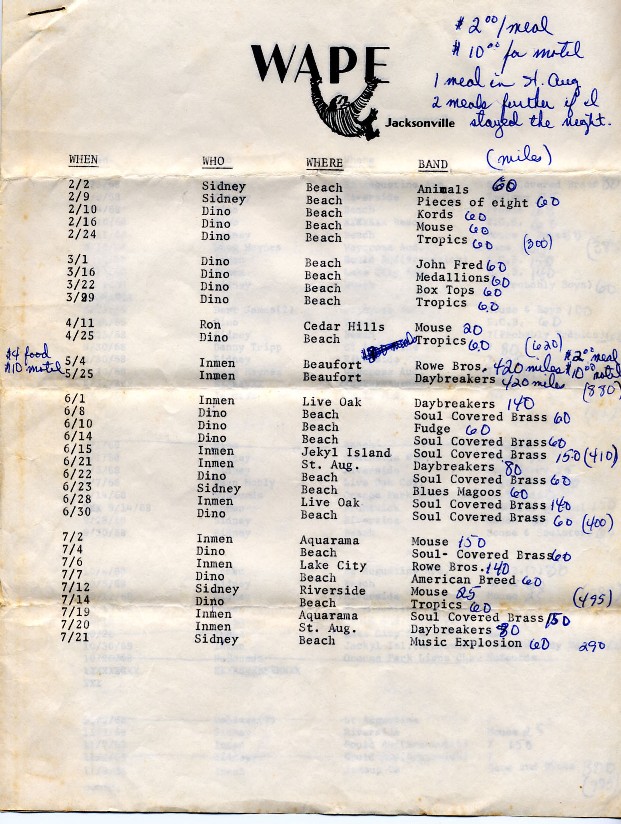 $2.00/meal
$10.00 for motel
1 meal in St. Aug
2 meals further if I
stayed the night.
WAPE
Jacksonville
(miles)
WHEN WHO WHERE BAND
2/2 Sidney Beach Animals 60
2/9 Sidney Beach Pieces of eight 60
2/10 Dino Beach Kords 60
2/16 Dino Beach Mouse 60
2/24 Dino Beach Tropics 60 (300)
3/1 Dino Beach John Fred 60
3/16 Dino Beach Medallions 60
3/22 Dino Beach Box Tops 60
3/29 Dino Beach Tropics 60
4/11 Ron Cedar Hills Mouse 20
4/25 Dino Beach Tropics 60 (620)
$4 food 5/4 Inmen Beaufort Rowe Bros. 420 miles $2.00 meal
$10 motel 5/25 Inmen Beaufort Daybreakers 420 miles $10.00 motel
(880)
6/1 Inmen Live Oak Daybreakers 140
6/8 Dino Beach Soul Covered Brass 60
6/10 Dino Beach Fudge 60
6/14 Dino Beach Soul Covered Brass 60
6/15 Inmen Jekyl Island Soul Covered Brass 150 (410)
6/21 Inmen St. Aug. Daybreakers 80
6/22 Dino Beach Soul Covered Brass 60
6/23 Sidney Beach Blues Magoos 60
6/28 Inmen Live Oak Soul Covered Brass 140
6/30 Dino Beach Soul Covered Brass 60 (400)
7/2 Inmen Aquarama Mouse 150
7/4 Dino Beach Soul- Covered Brass 60
7/6 Inmen Lake City Rowe Bros. 140
7/7 Dino Beach American Breed 60
7/12 Sidney Riverside Mouse 25
7/14 Dino Beach Tropics 60 (495)
7/19 Inmen Aquarama Soul Covered Brass 150
7/20 Inmen St. Aug. Daybreakers 80
7/21 Sidney Beach Music Explosion 60 290